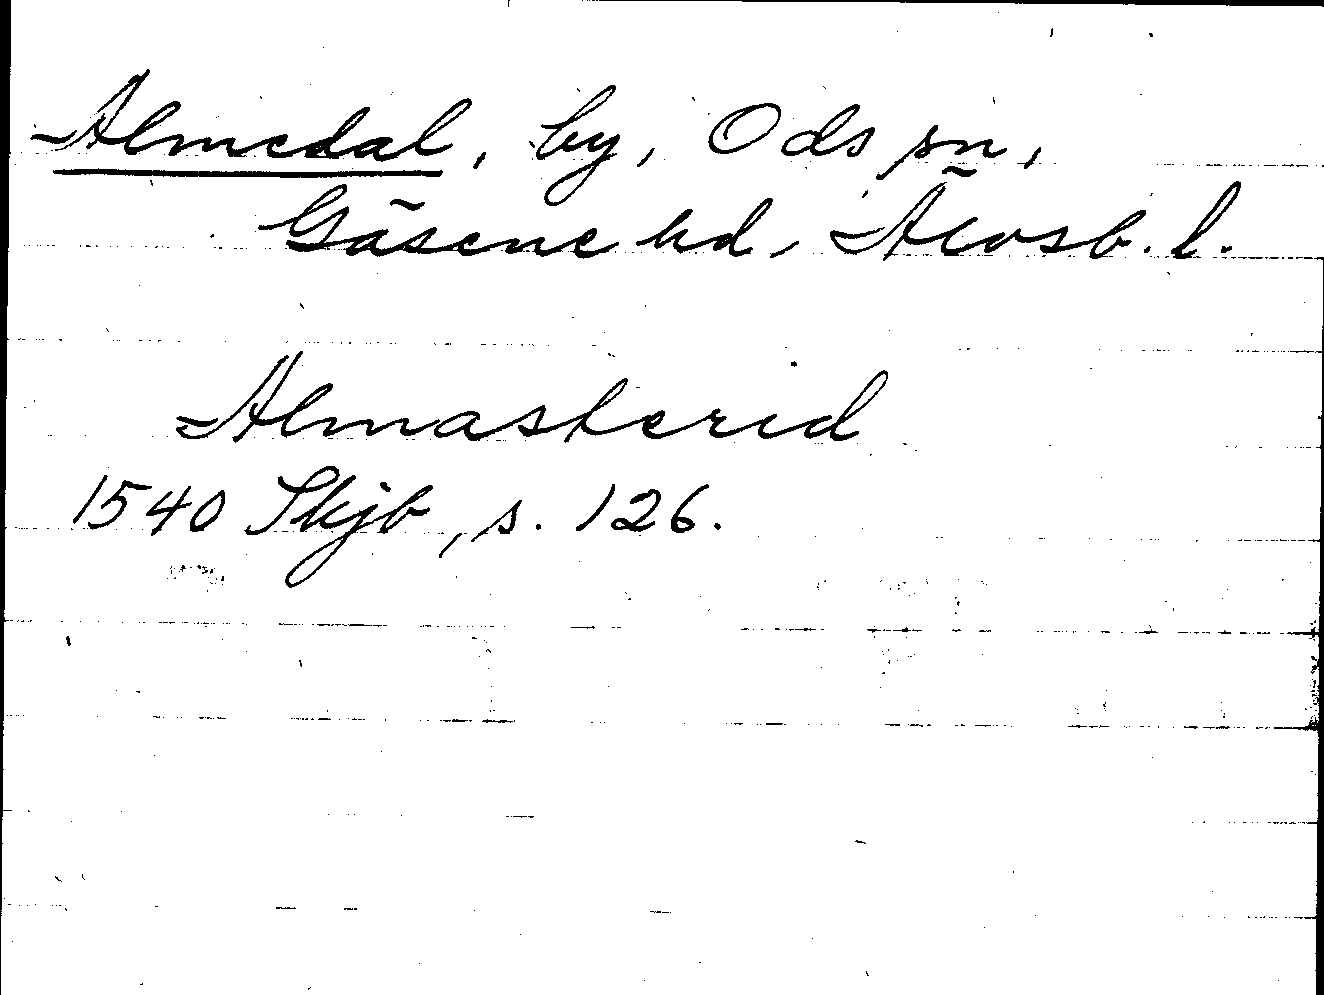 Almedal, by, Ods sn,
Gäsene hd, Älvsb. l.
Almasterid
1540 Skjb, s. 126.